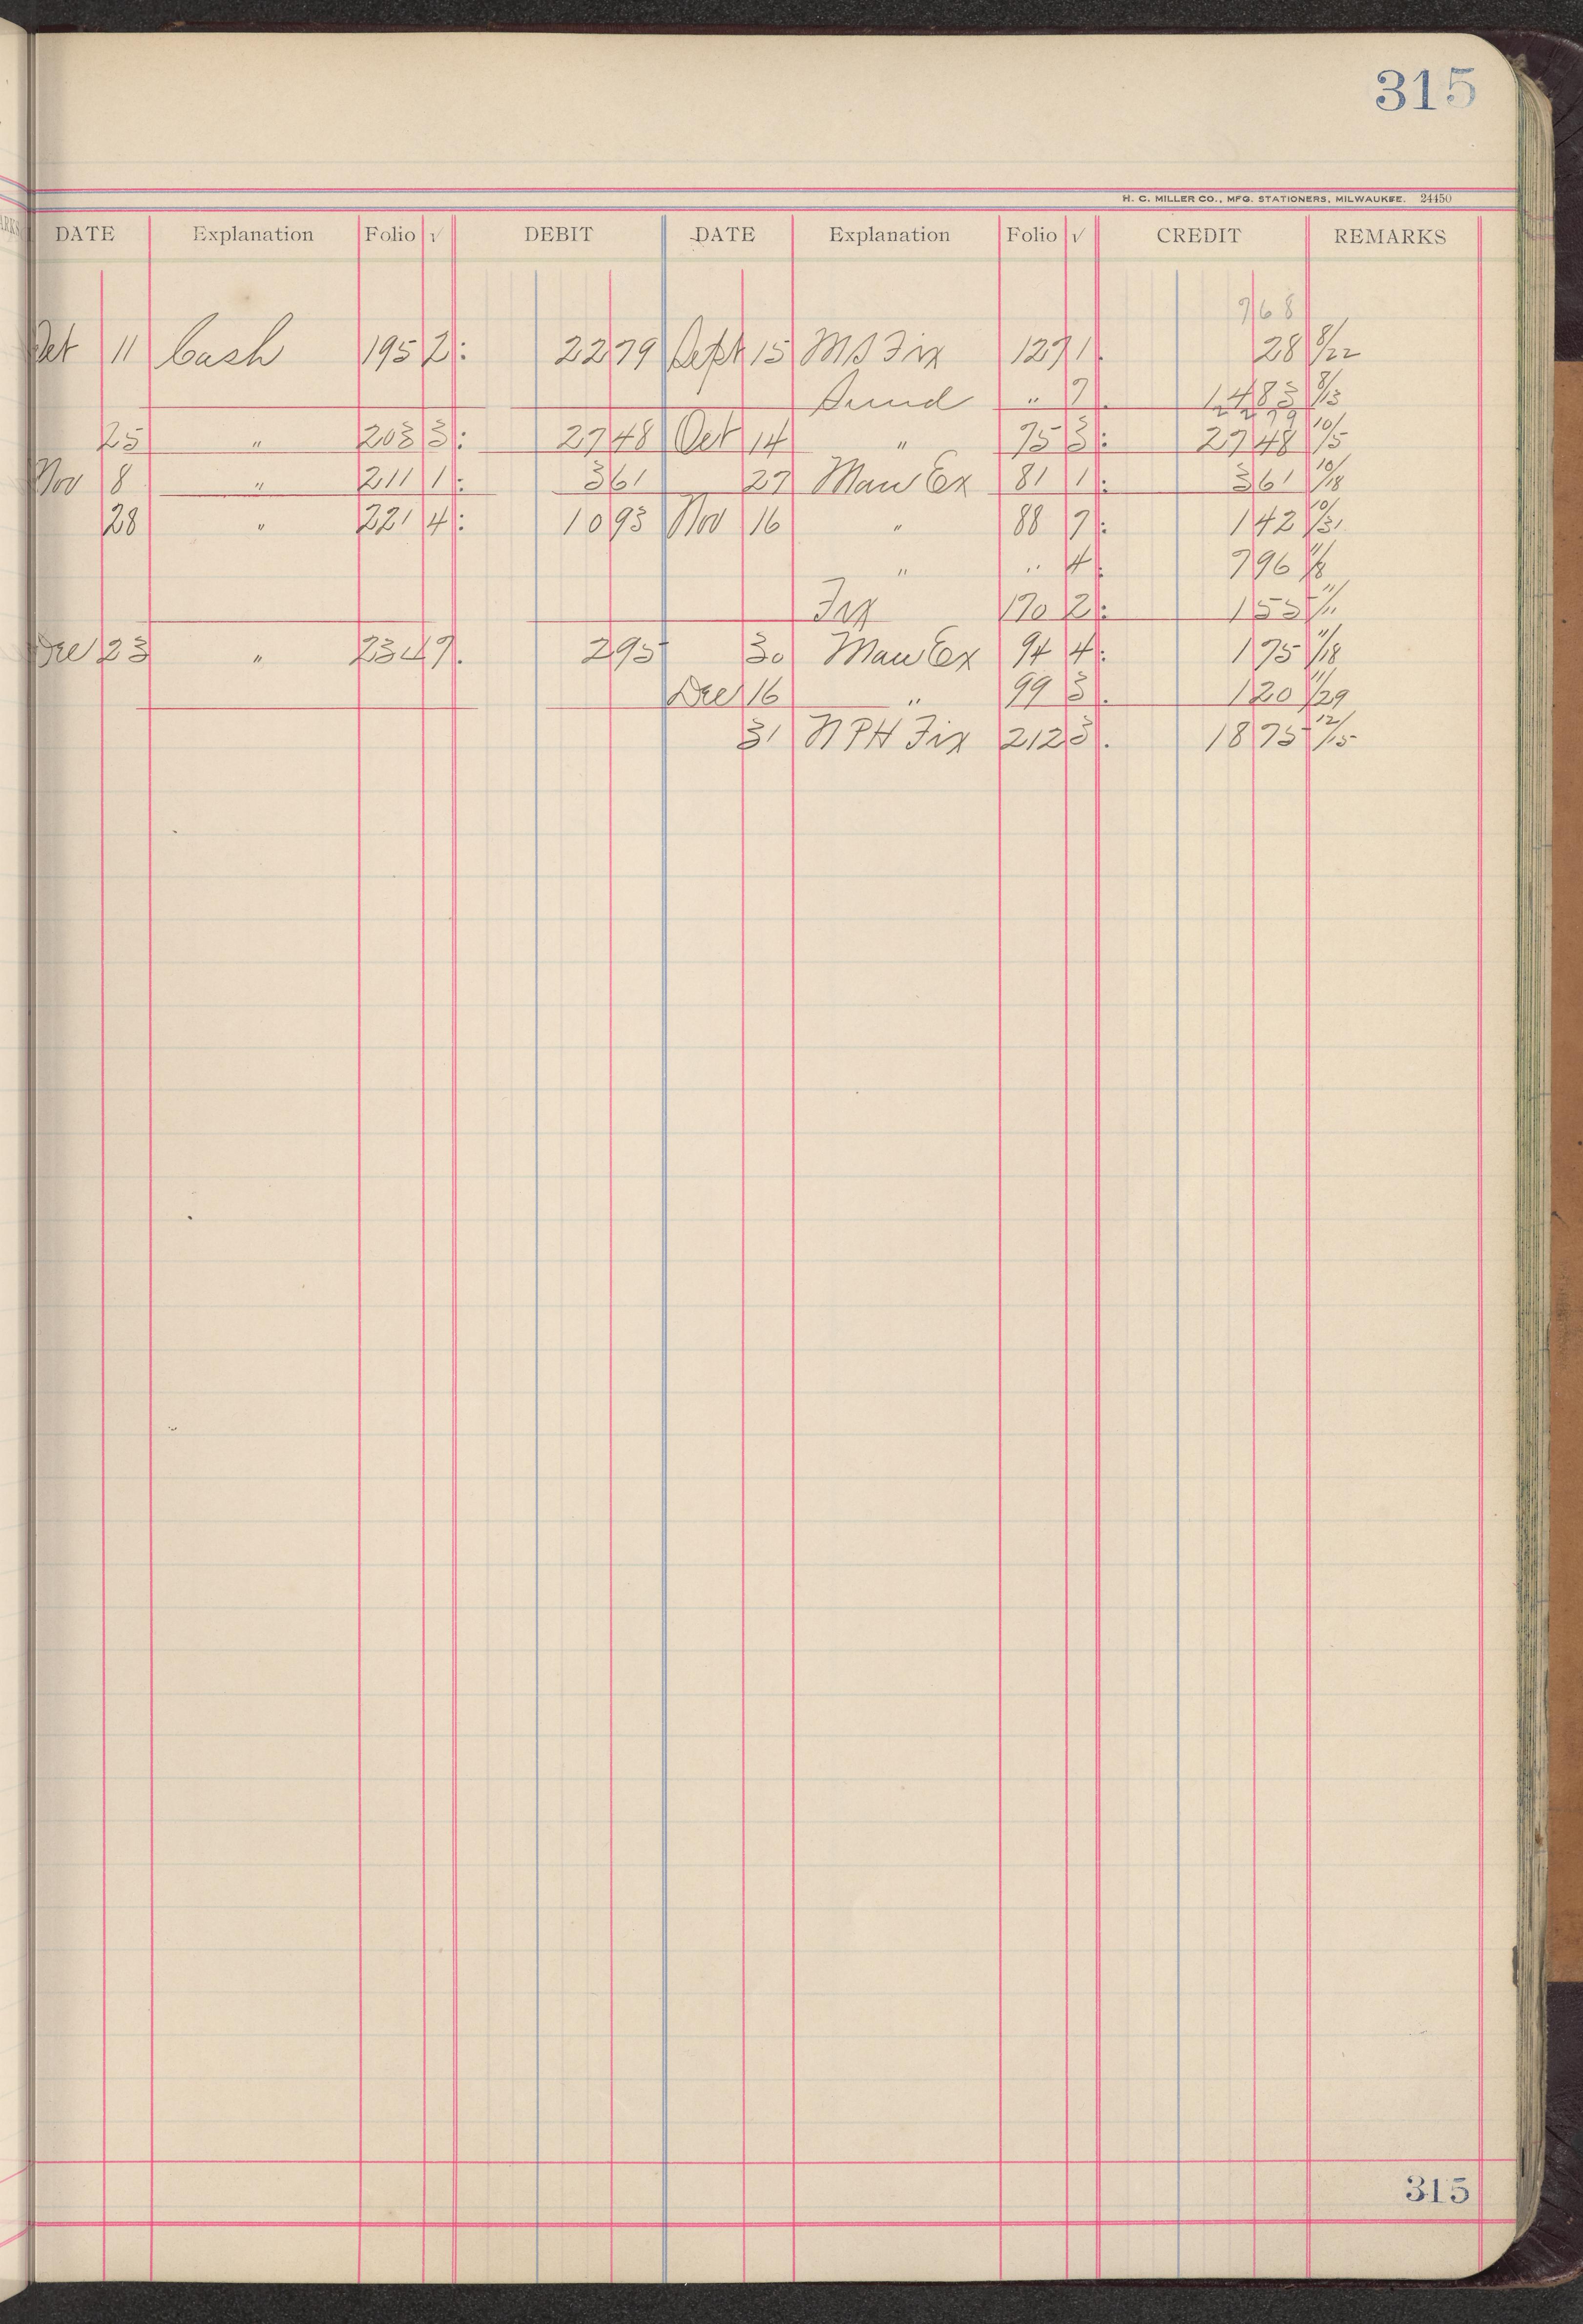 315
H. C. MILLER CO., MFG. STATIONERS, MILWAUKEE. 24450
DATE Explanation Folio √ DEBIT DATE Explanation Folio √ CREDIT REMARKS
768
Oct 11 Cash 195 2 22 79 Sept 15 MS Fix 127 1 28 8/22
Sund " 7 14 83 9/13
22 79
25 " 203 3 27 48 Oct 14 " 75 3 27 48 10/5
Nov 8 " 211 1 3 61 27 Man Ex 81 1 3 61 10/18
28 " 221 4 10 93 Nov 16 " 88 7 1 42 10/31
" " 4 7 96 11/8
Fix 170 2 1 55 11/11
Dec 23 " 234 7 2 95 30 Man Ex 94 4 1 75 11/18
Dec 16 " 99 3 1 20 11/29
31 NPH Fix 212 3 18 75 12/15
315